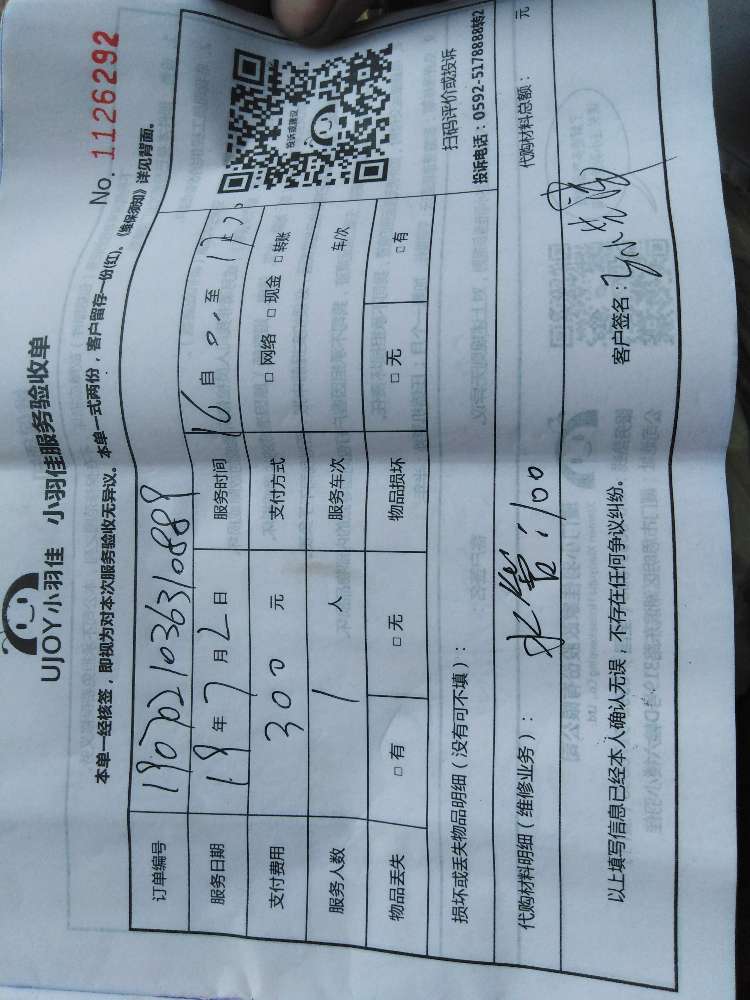 UJOY小羽佳 小羽佳服务验收单
本单一经核签，即视为对本次服务验收无异议。本单一式两份，客户留存一份(红)。《维保须知》详见背面。
No. 1126292
订单编号 1907021036310889
服务日期 19年7月2日 服务时间 16 自 0 至 17
支付费用 300 元 支付方式 □ 网络 □ 现金 □ 转账
服务人数 1 人 服务车次 车/次
物品丢失 □ 有 □ 无 物品损坏 □ 无 □ 有
投诉或建议
扫码评价或投诉
投诉电话：0592-5178888转2
损坏或丢失物品明细（没有可不填）：
代购材料明细（维修业务）： 水管：100 代购材料总额： 元
以上填写信息已经本人确认无误，不存在任何争议纠纷。 客户签名：